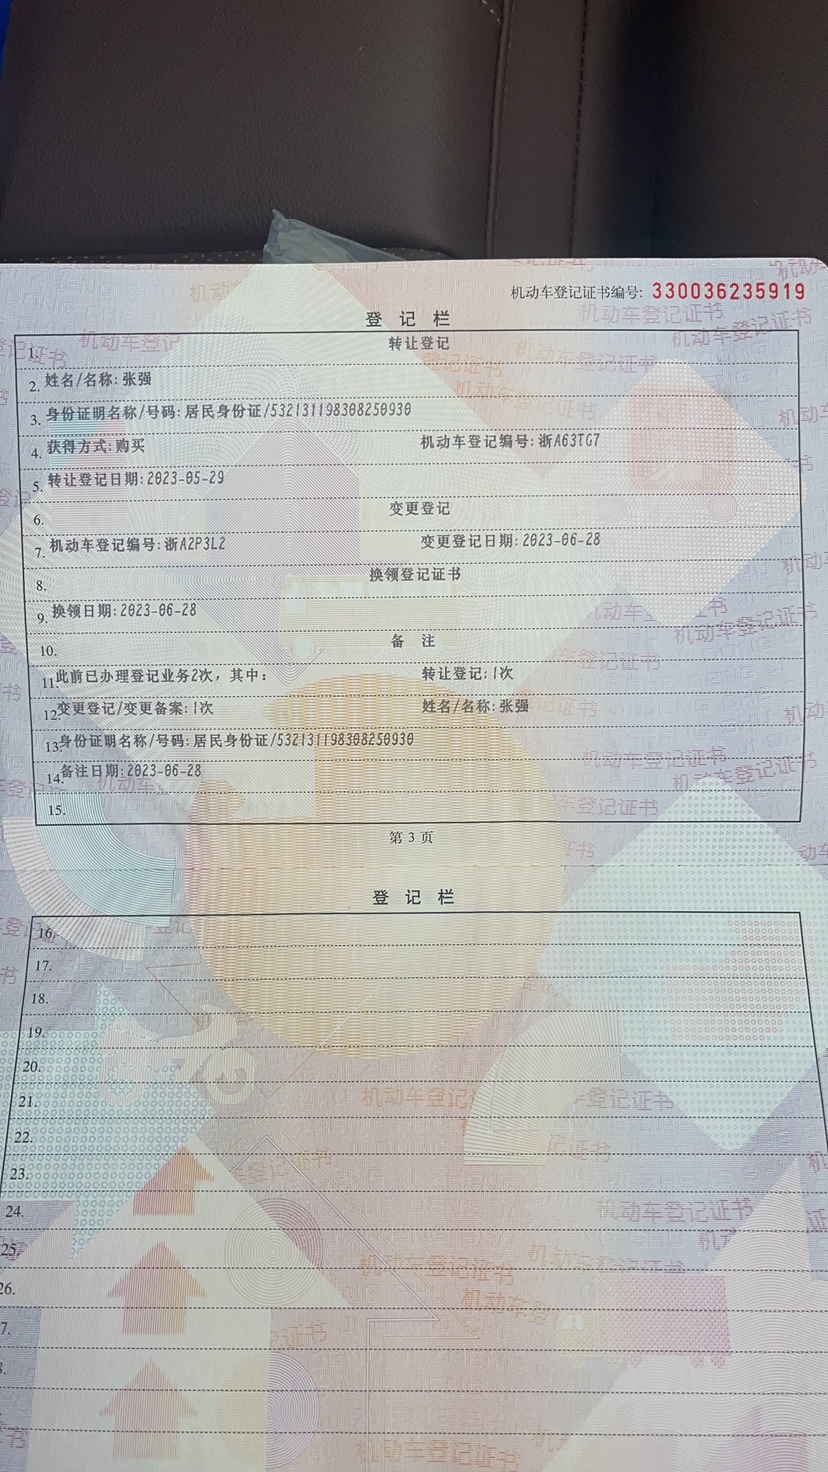 机动车登记证书编号: 330036235919
登 记 栏
1. 转让登记
2. 姓名/名称: 张强
3. 身份证明名称/号码: 居民身份证/532131198308250930
4. 获得方式: 购买 机动车登记编号: 浙A63TG7
5. 转让登记日期: 2023-05-29
6. 变更登记
7. 机动车登记编号: 浙A2P3L2 变更登记日期: 2023-06-28
8. 换领登记证书
9. 换领日期: 2023-06-28
10. 备 注
11. 此前已办理登记业务2次，其中: 转让登记: 1次
12. 变更登记/变更备案: 1次 姓名/名称: 张强
13. 身份证明名称/号码: 居民身份证/532131198308250930
14. 备注日期: 2023-06-28
15.
第 3 页
登 记 栏
16.
17.
18.
19.
20.
21.
22.
23.
24.
25.
26.
7.